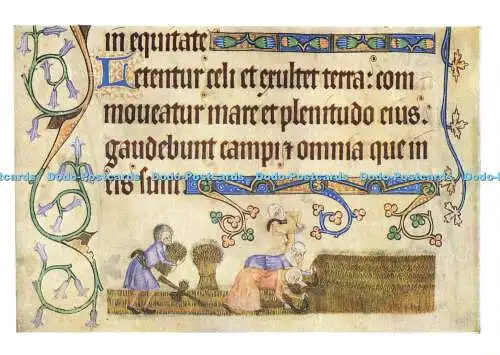 in equitate
Letentur celi et exultet terra: com
moueatur mare et plenitudo eius.
gaudebunt campi ⁊ omnia que in
eis sunt
Dodo-Postcards Dodo-Postcards Dodo-Postcards Dodo-Postcards Dodo-Postcards